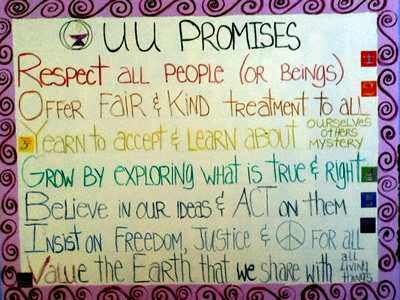 UU PROMISES
RESPECT ALL PEOPLE (OR BEINGS)
OFFER FAIR & KIND TREATMENT TO ALL
YEARN TO ACCEPT & LEARN ABOUT OURSELVES OTHERS MYSTERY
GROW BY EXPLORING WHAT IS TRUE & RIGHT
BELIEVE IN OUR IDEAS & ACT ON THEM
INSIST ON FREEDOM, JUSTICE & ☮ FOR ALL
VALUE THE EARTH THAT WE SHARE WITH ALL LIVING THINGS